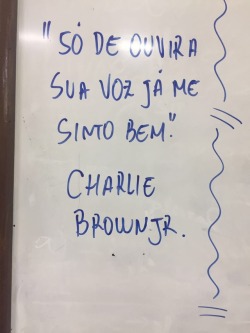 "SÓ DE OUVIR A
SUA VOZ JÁ ME
SINTO BEM."
CHARLIE
BROWN JR.